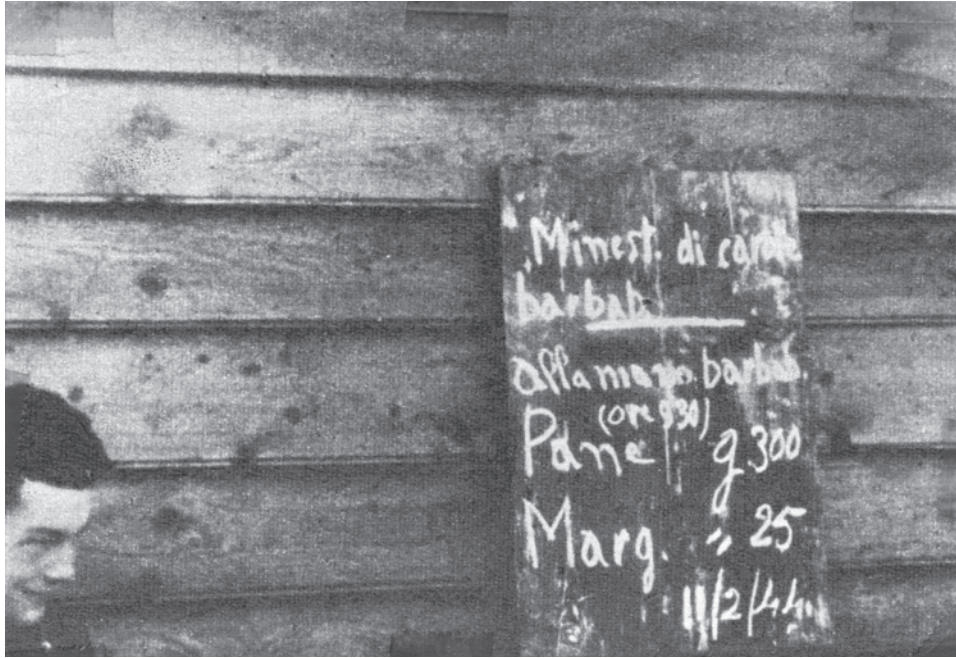 Minest. di carote
barbab.
alla mano. barbab.
(ore 9 30)
Pane g 300
Marg. " 25
11/2/44.